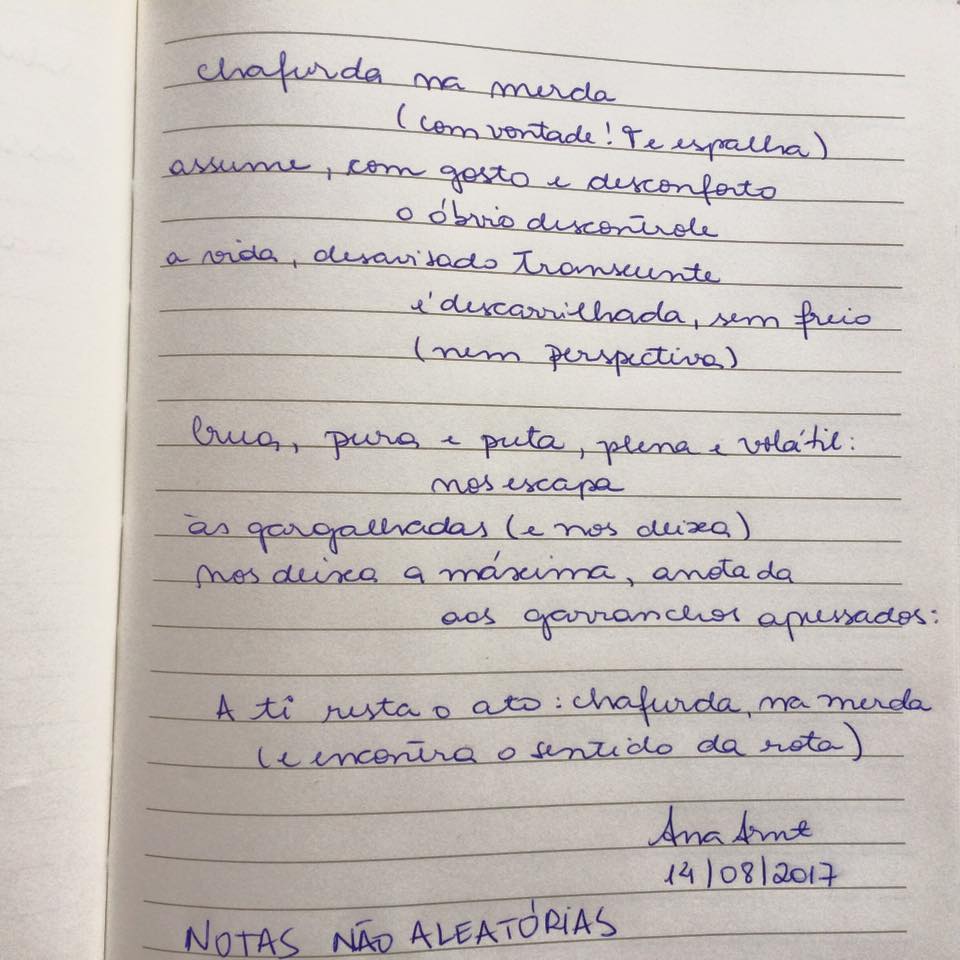 chafurda na merda
(com vontade! Te espalha)
assume, com gosto e desconforto
o óbvio descontrole
a vida, desavisado transeunte
é descarrilhada, sem freio
(nem perspectiva)
Crua, pura e puta, plena e volátil:
nos escapa
às gargalhadas (e nos deixa)
nos deixa a máxima, anotada
aos garranchos apressados:
A ti resta o ato: chafurda, na merda
(e encontra o sentido da rota)
Ana Arnt
14/08/2017
NOTAS NÃO ALEATÓRIAS